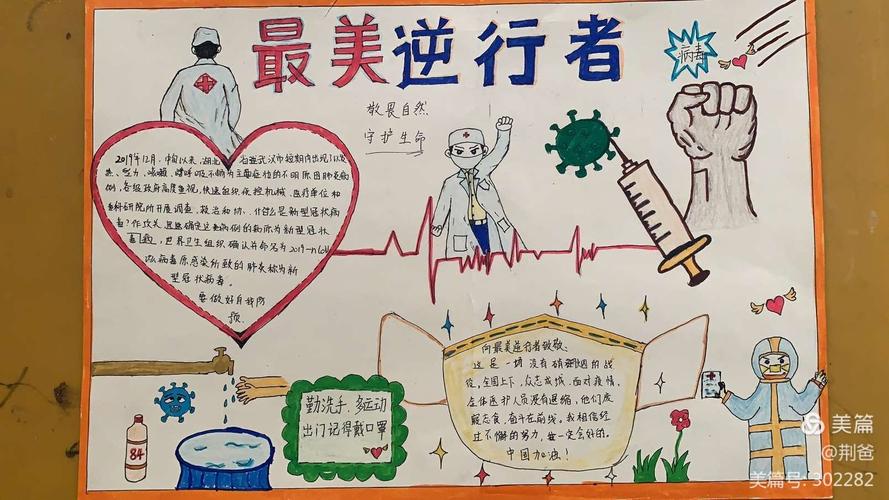 最美逆行者
病毒
敬畏自然
守护生命
2019年12月,中旬以来,湖北
省武汉市短期内出现了以发
热、乏力、咳嗽、呼吸不畅为主要症状的不明原因肺炎病
例,各级政府高度重视,快速组织疾控机械、医疗单位和
科研院所开展调查、救治和协
什么是新型冠状病
毒?
病例的病原为新型冠状
世界卫生组织确认并命名为2019-nCoV
病毒原感染所致的肺炎称为新
型冠状病毒。
要做好自我防
预.
向最美逆行者致敬:
这是一场没有硝烟的战
役,全国上下,众志成城,面对疫情,
全体医护人员没有退缩,他们废
寝忘食,奋斗在前线。我相信经
过不懈的努力,也一定会好的。
中国加油!
勤洗手.多运动
出门记得戴口罩
84
美篇
@荆爸
美篇号: 302282